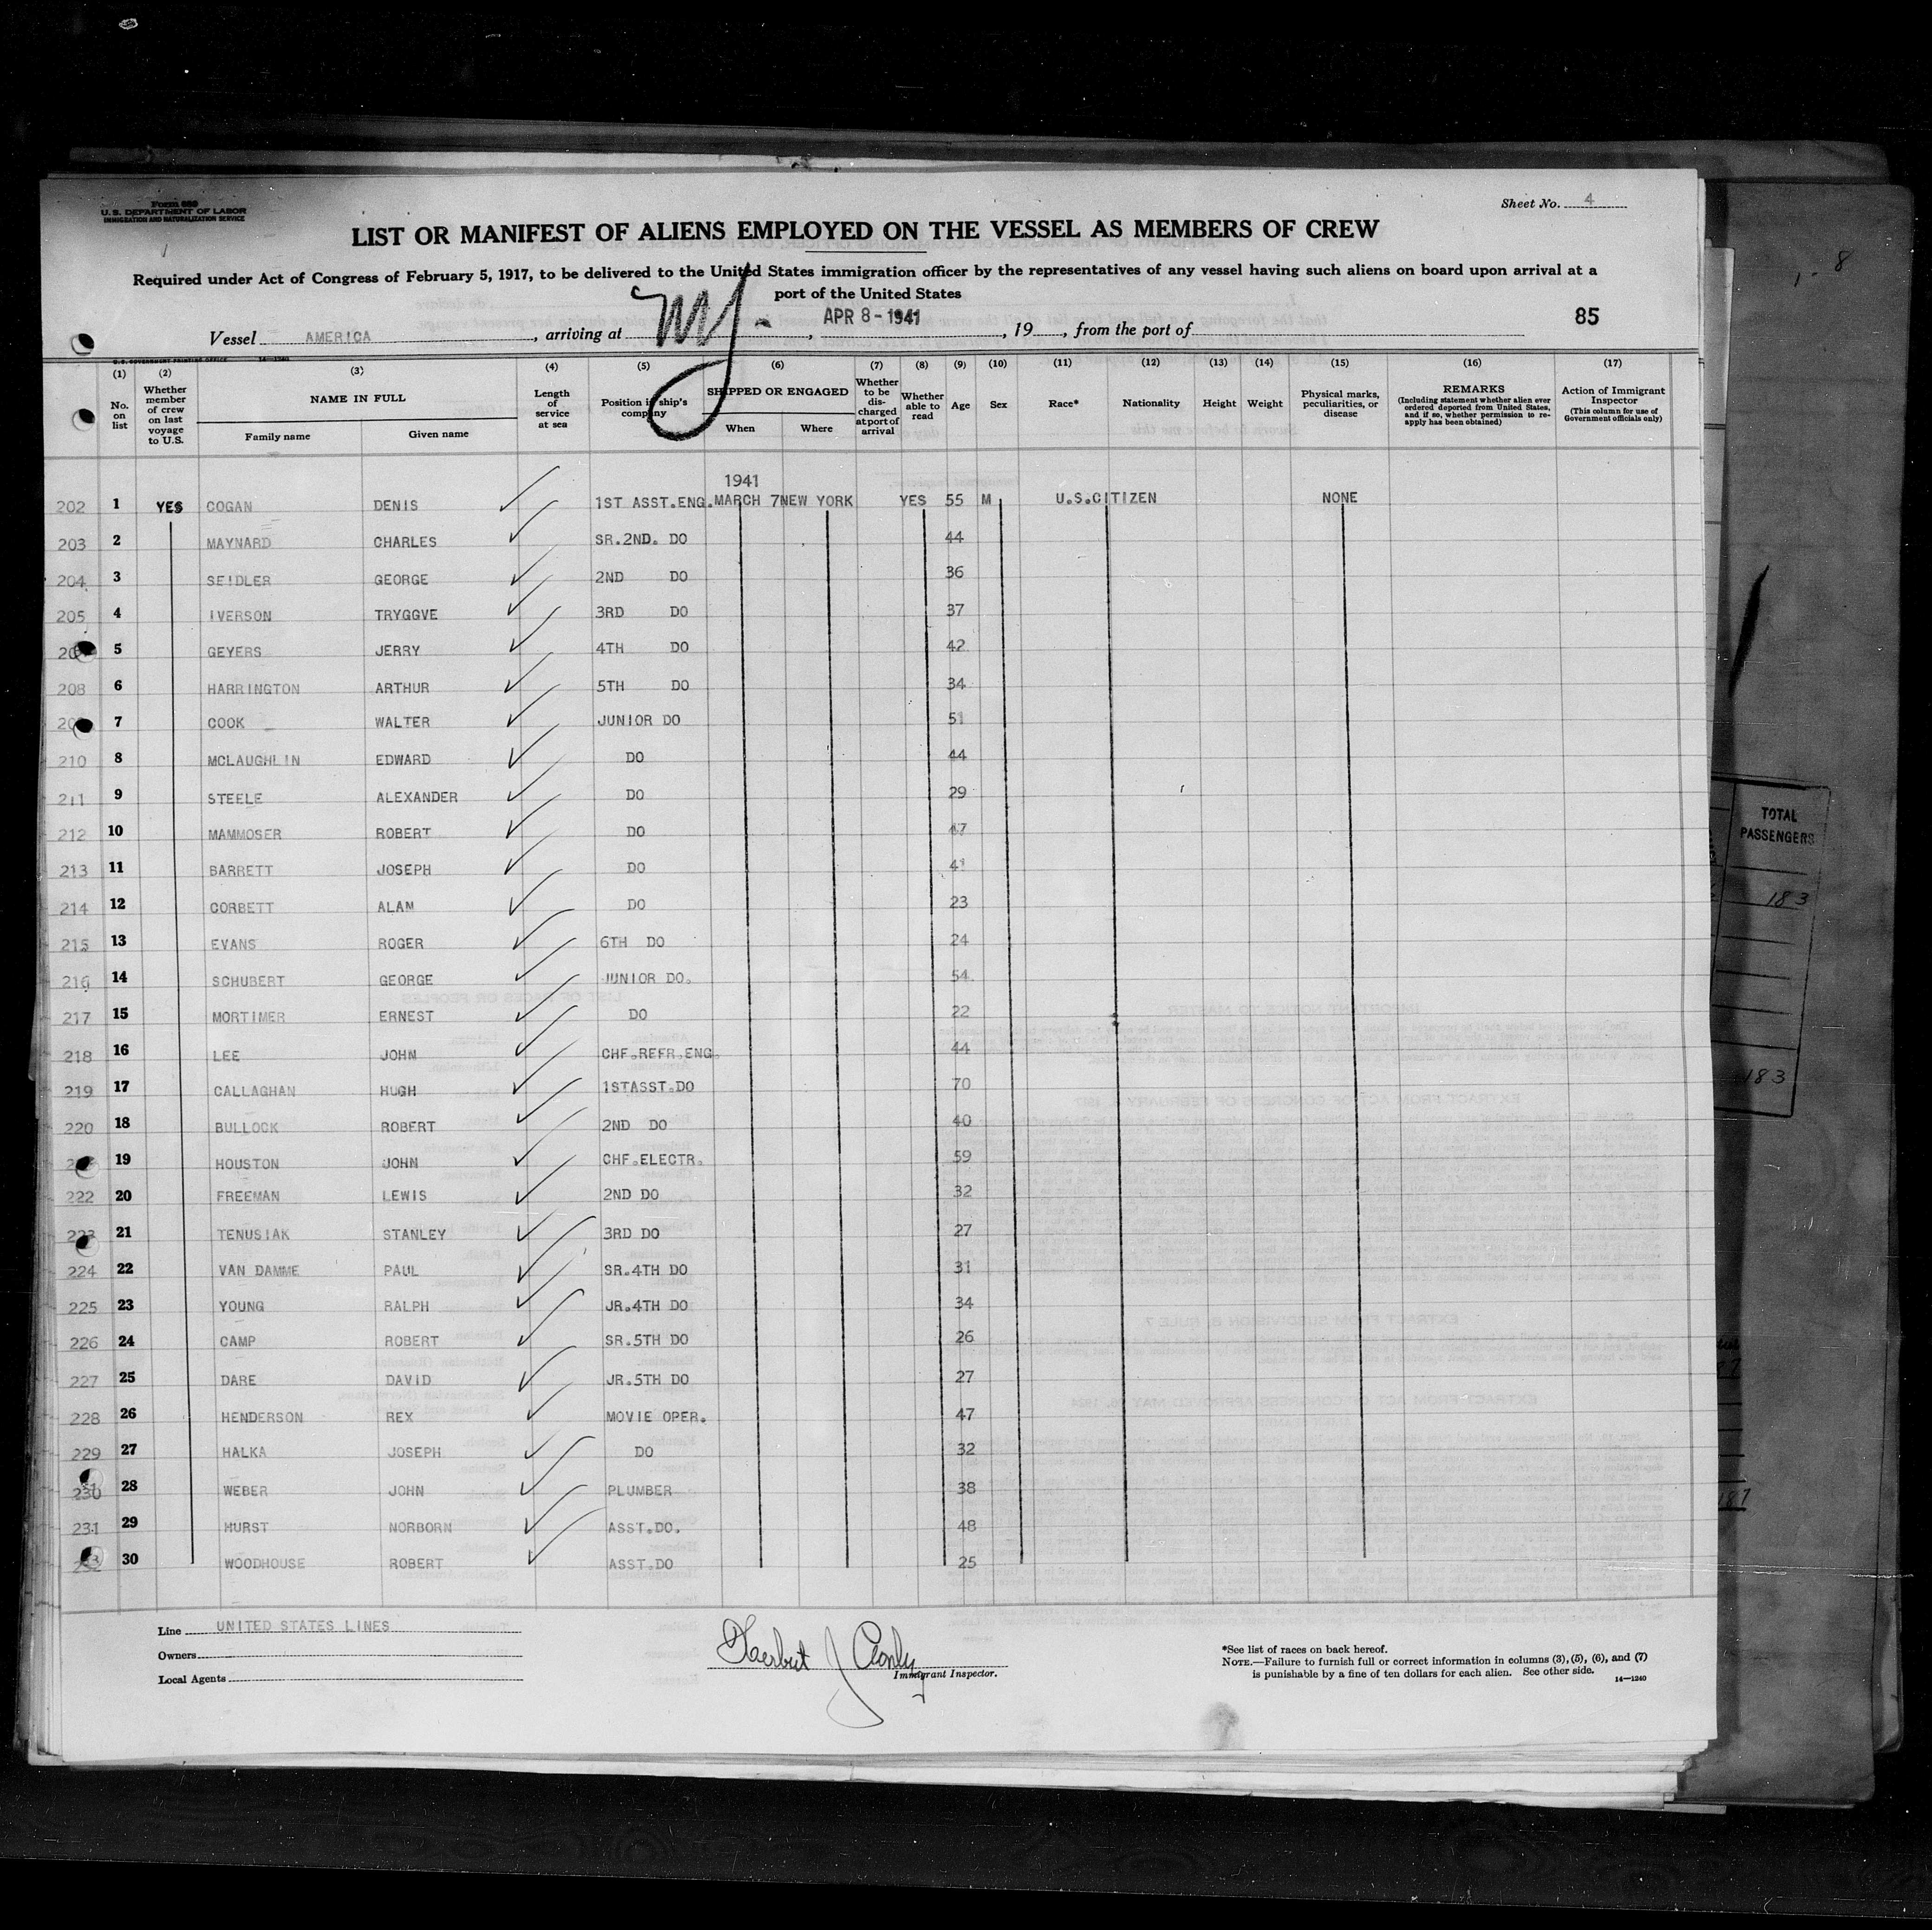 Form 689
U. S. DEPARTMENT OF LABOR
IMMIGRATION AND NATURALIZATION SERVICE
Sheet No. 4
LIST OR MANIFEST OF ALIENS EMPLOYED ON THE VESSEL AS MEMBERS OF CREW
Required under Act of Congress of February 5, 1917, to be delivered to the United States immigration officer by the representatives of any vessel having such aliens on board upon arrival at a
port of the United States
85
Vessel AMERICA, arriving at NY., APR 8-1941, 19, from the port of
U.S. GOVERNMENT PRINTING OFFICE 14—1240
(1) (2) (3) (4) (5) (6) (7) (8) (9) (10) (11) (12) (13) (14) (15) (16) (17)
No. on list
Whether member of crew on last voyage to U.S.
NAME IN FULL
Family name
Given name
Length of service at sea
Position in ship's company
SHIPPED OR ENGAGED
When
Where
Whether to be discharged at port of arrival
Whether able to read
Age
Sex
Race*
Nationality
Height
Weight
Physical marks, peculiarities, or disease
REMARKS
(Including statement whether alien ever ordered deported from United States, and if so, whether permission to reapply has been obtained)
Action of Immigrant Inspector
(This column for use of Government officials only)
1941
202 1 YES COGAN DENIS 1ST ASST.ENG. MARCH 7 NEW YORK YES 55 M U.S.CITIZEN NONE
203 2 MAYNARD CHARLES SR.2ND. DO 44
204 3 SEIDLER GEORGE 2ND DO 36
205 4 IVERSON TRYGGVE 3RD DO 37
5 GEYERS JERRY 4TH DO 42
208 6 HARRINGTON ARTHUR 5TH DO 34
7 COOK WALTER JUNIOR DO 51
210 8 MCLAUGHLIN EDWARD DO 44
211 9 STEELE ALEXANDER DO 29
212 10 MAMMOSER ROBERT DO 47
213 11 BARRETT JOSEPH DO 41
214 12 CORBETT ALAN DO 23
215 13 EVANS ROGER 6TH DO 24
216 14 SCHUBERT GEORGE JUNIOR DO. 54
217 15 MORTIMER ERNEST DO 22
218 16 LEE JOHN CHF.REFR.ENG. 44
219 17 CALLAGHAN HUGH 1STASST.DO 70
220 18 BULLOCK ROBERT 2ND DO 40
19 HOUSTON JOHN CHF.ELECTR. 59
222 20 FREEMAN LEWIS 2ND DO 32
223 21 TENUSIAK STANLEY 3RD DO 27
224 22 VAN DAMME PAUL SR.4TH DO 31
225 23 YOUNG RALPH JR.4TH DO 34
226 24 CAMP ROBERT SR.5TH DO 26
227 25 DARE DAVID JR.5TH DO 27
228 26 HENDERSON REX MOVIE OPER. 47
229 27 HALKA JOSEPH DO 32
230 28 WEBER JOHN PLUMBER 38
231 29 HURST NORBORN ASST.DO. 48
30 WOODHOUSE ROBERT ASST.DO 25
Line UNITED STATES LINES
Owners
Local Agents
Herbert J
Immigrant Inspector.
*See list of races on back hereof.
NOTE.—Failure to furnish full or correct information in columns (3), (5), (6), and (7)
is punishable by a fine of ten dollars for each alien. See other side.
14—1240
TOTAL
PASSENGERS
183
183
187